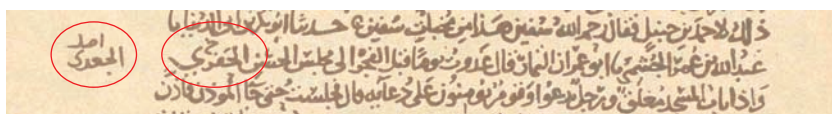 ذلك لاحمد بن حنبل فقال رحم الله سفين هذا من مخبات سفين حدثنا ابو بكر بن ابي الدنيا نا
عبد الله بن عمر الجشمي نا ابو عمران التمار قال غدوت يوما قبل الفجر الى مجلس الحسن الجفري
واذا باب المسجد مغلق ورجل يدعوا وقوم يومنون على دعايه قال فجلست حتى جا الموذن فاذن
اصل
الجعدي